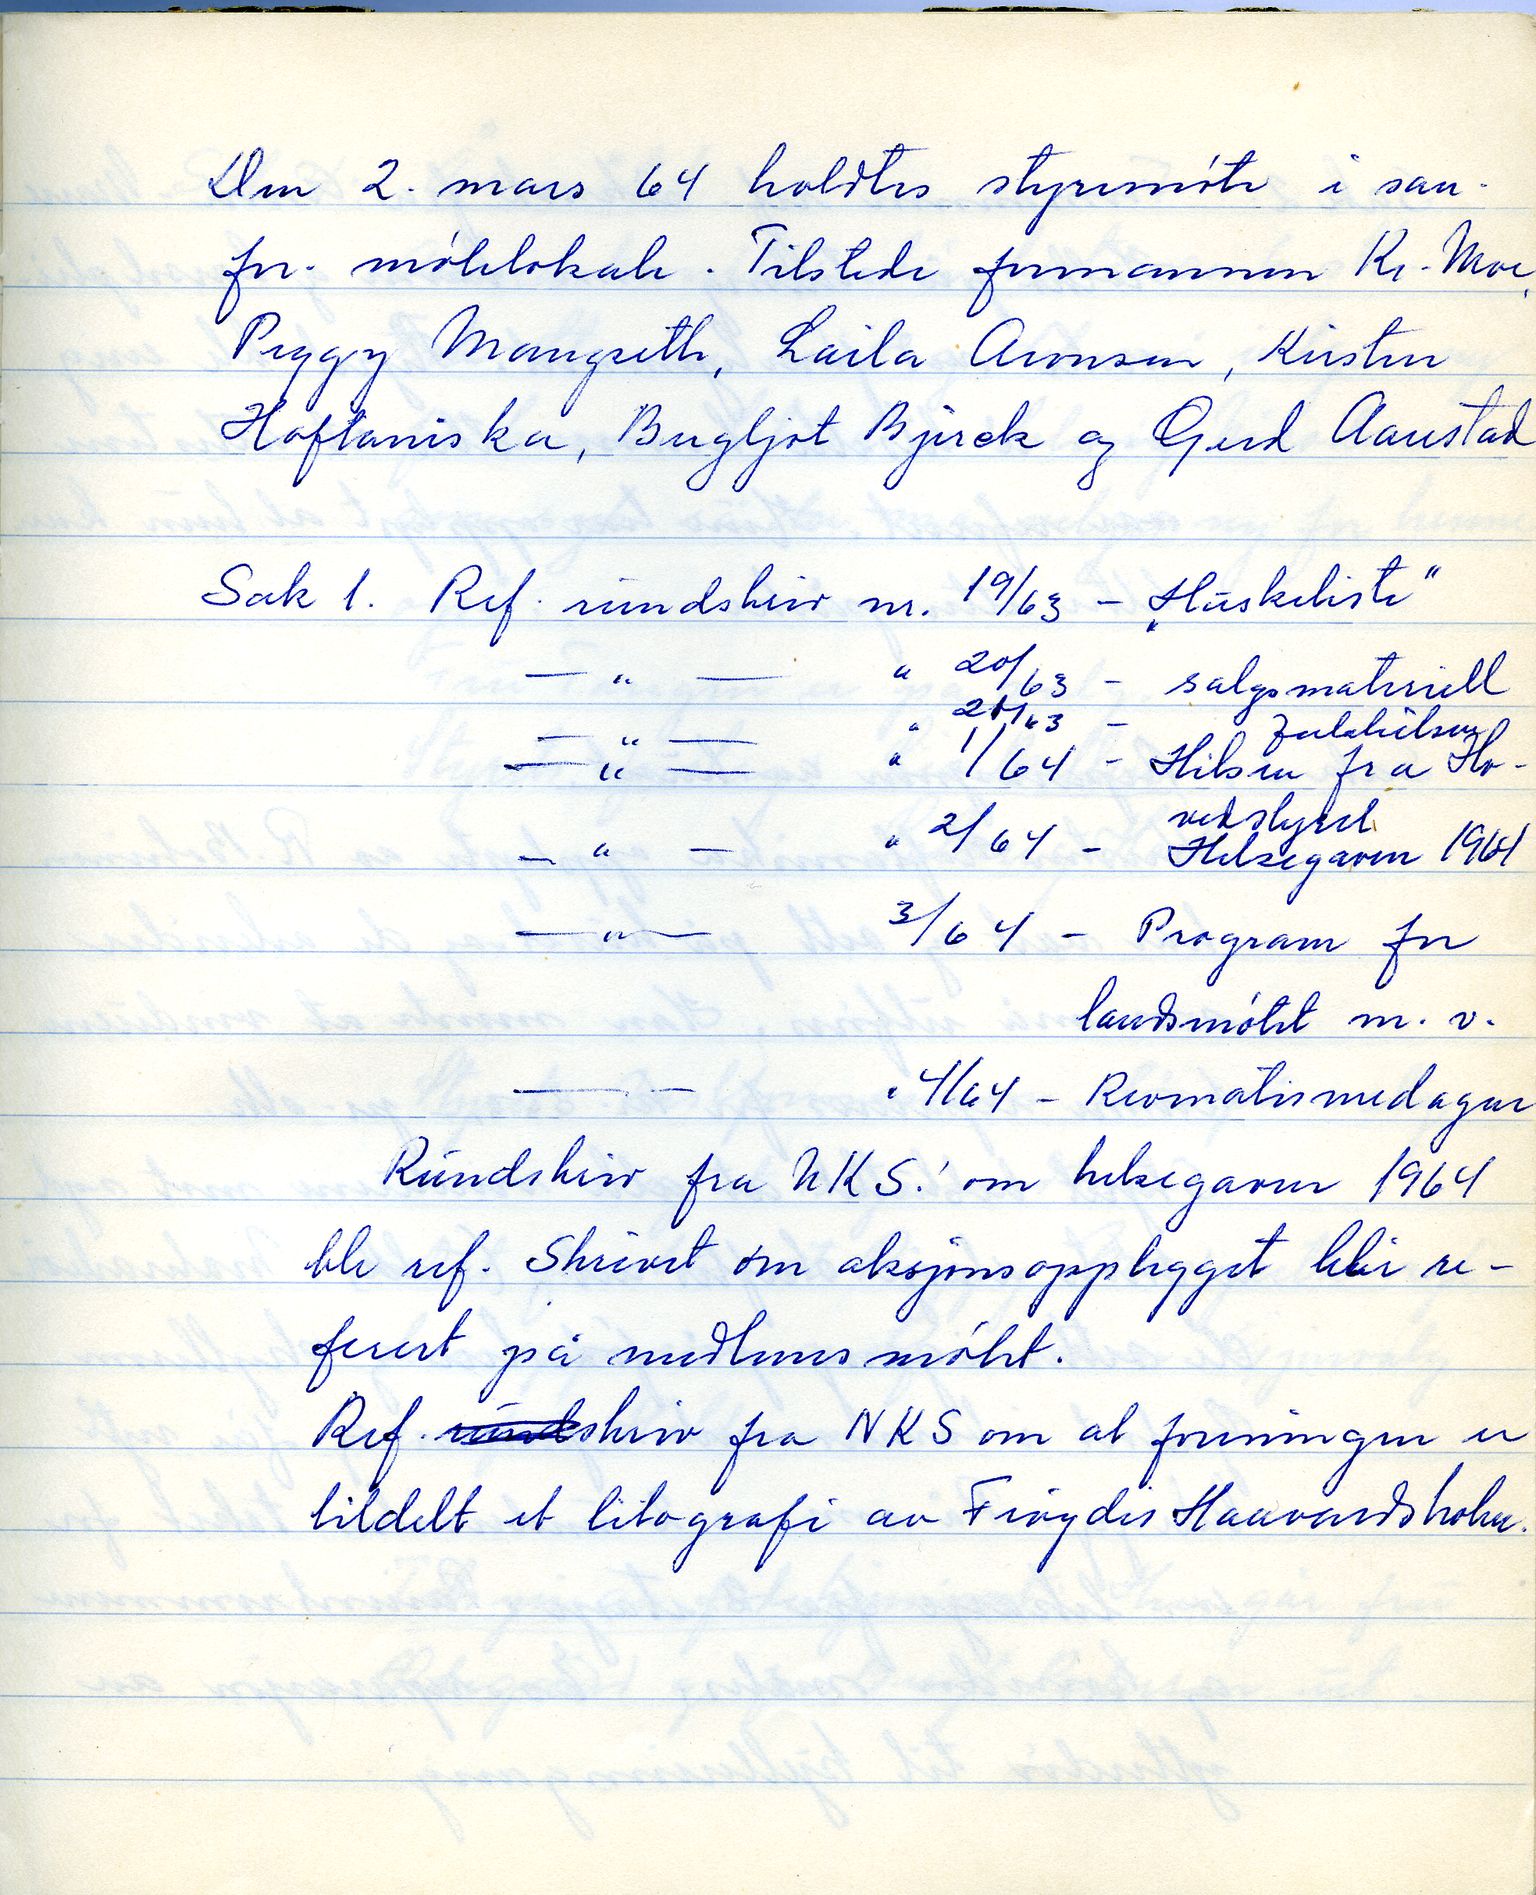 Den 2. mars 64 holdtes styremøte i san.
for. møtelokale. Tilstede formannen Kr. Moe,
Peggy Mangseth, Laila Aronsen, Kirsten
Haftaniska, Bergljot Bjørck og Gerd Aarstad
Sak 1. Ref. rundskriv nr. 19/63 - „Huskeliste"
— " — " 20/63 - salgsmateriell
— " — " 21/63 - Julehilsen
— " — " 1/64 - Hilsen fra Ho-
vedstyret
— " — " 2/64 - Helsegaven 1964
— " — 3/64 - Program for
landsmøtet m. v.
— — " 4/64 - Revmatismedagen
Rundskriv fra NKS. om helsegaven 1964
ble ref. Skrivet om aksjonsopplegget blir re-
ferert på medlemsmøtet.
Ref. rundskriv fra NKS om at foreningen er
tildelt et litografi av Frøydis Haavardsholm.